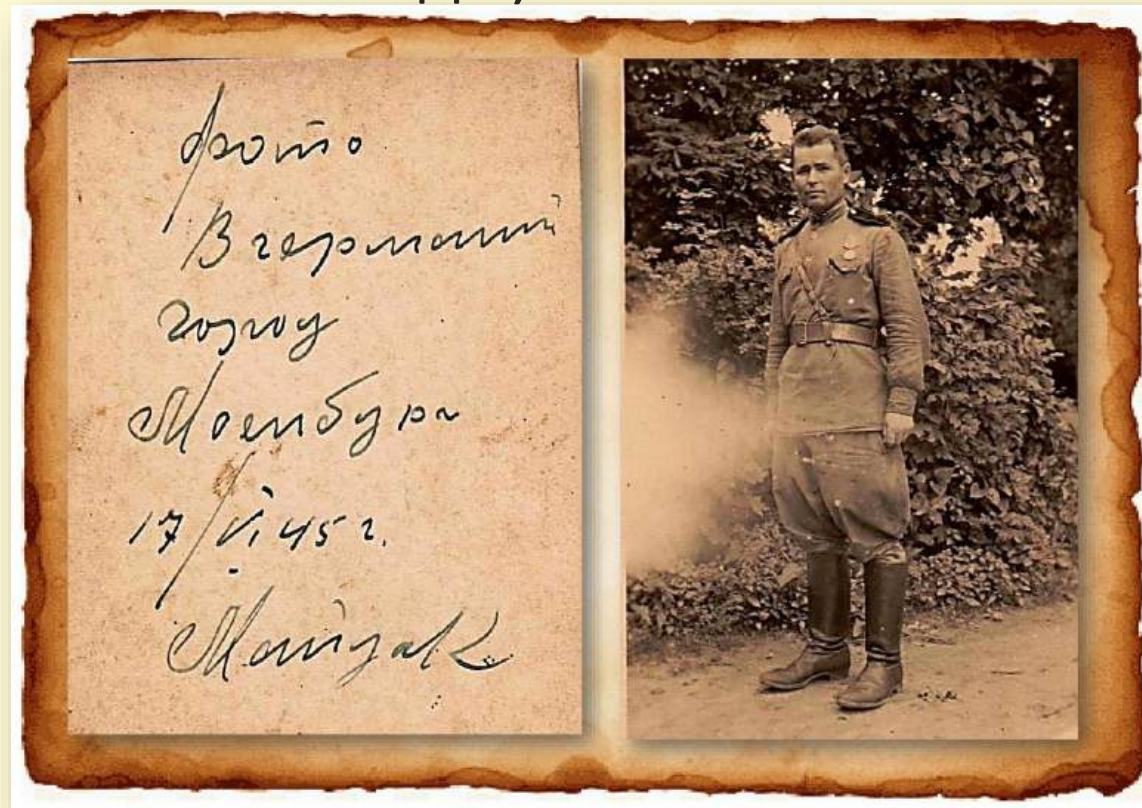 фото
В германий
город
Моенбург
17/VI 45 г.